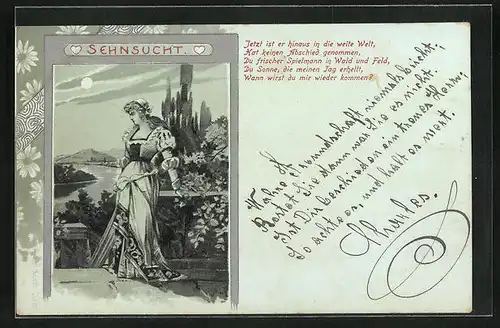 SEHNSUCHT.
Jetzt ist er hinaus in die weite Welt,
Hat keinen Abschied genommen,
Du frischer Spielmann in Wald und Feld,
Du Sonne, die meinen Tag erhellt,
Wann wirst du mir wieder kommen?
Wahre Freundschaft niemals bricht;
Rostet Sie dann war Sie es nicht
Ist Dir beschieden ein treues Herz,
So acht es, und halt es wert.
Charles.